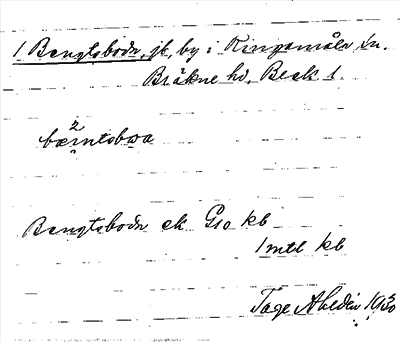 1 Bengtsboda, jb, by i Ringamåla sn.
Bräkne hd, Blek l.
bæ2ŋtsboa
Bengtsboda ek G10 kb
1 mtl kb
Tage Ahldén 1930